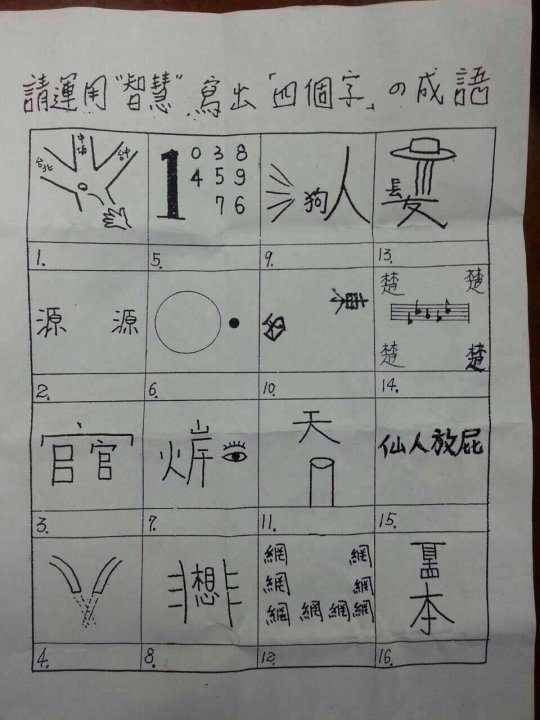 請運用"智慧"寫出「四個字」の成語
台北 台中
1 0 3 8
4 5 9
7 6
狗 人
長 友
1.
5.
9.
13.
源 源
楚 楚
楚 楚
2.
6.
10.
14.
官
天
仙人放屁
3.
7.
11.
15.
想
網 網
網 網
網 網 網 網
本
4.
8.
12.
16.